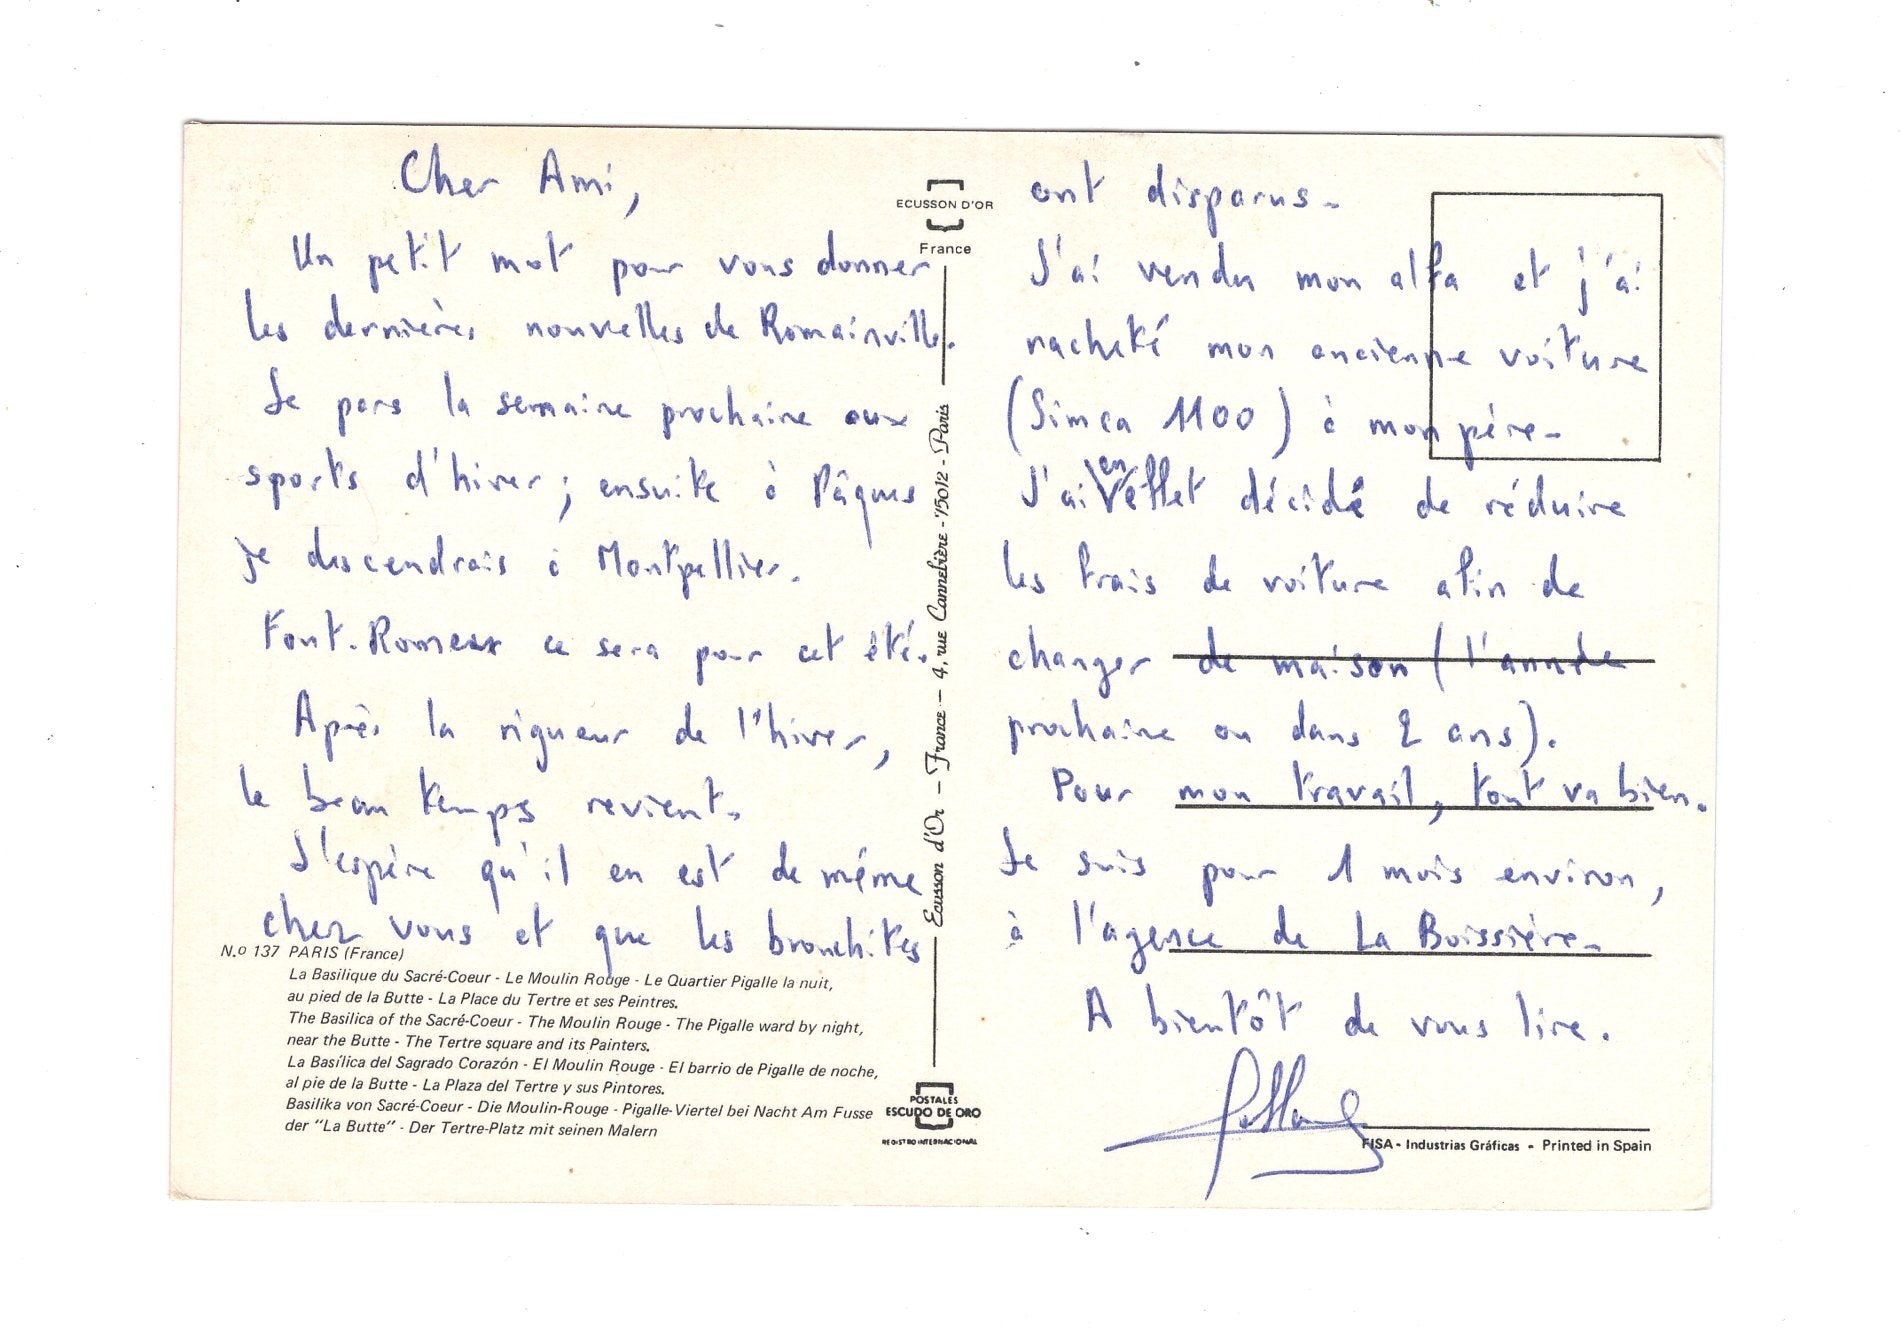 Cher Ami,
Un petit mot pour vous donner
les dernières nouvelles de Romainville.
Je pars la semaine prochaine aux
sports d'hiver ; ensuite à Pâques
je descendrais à Montpellier.
Font-Romeux ce sera pour cet été.
Après la rigueur de l'hiver,
le beau temps revient.
J'espère qu'il en est de même
chez vous et que les bronchites
N.o 137 PARIS (France)
La Basilique du Sacré-Coeur - Le Moulin Rouge - Le Quartier Pigalle la nuit,
au pied de la Butte - La Place du Tertre et ses Peintres.
The Basilica of the Sacré-Coeur - The Moulin Rouge - The Pigalle ward by night,
near the Butte - The Tertre square and its Painters.
La Basílica del Sagrado Corazón - El Moulin Rouge - El barrio de Pigalle de noche,
al pie de la Butte - La Plaza del Tertre y sus Pintores.
Basilika von Sacré-Coeur - Die Moulin-Rouge - Pigalle-Viertel bei Nacht Am Fusse
der "La Butte" - Der Tertre-Platz mit seinen Malern
ECUSSON D'OR
France
Ecusson d'Or - France - 4, rue Cannebière - 75012 - Paris
POSTALES
ESCUDO DE ORO
REGISTRO INTERNACIONAL
ont disparus.
J'ai vendu mon alfa et j'ai
racheté mon ancienne voiture
(Simca 1100) à mon père.
J'ai en effet décidé de réduire
les frais de voiture afin de
changer de maison (l'année
prochaine ou dans 2 ans).
Pour mon travail, tout va bien.
Je suis pour 1 mois environ,
à l'agence de La Boissière.
A bientôt de vous lire.
FISA - Industrias Gráficas - Printed in Spain